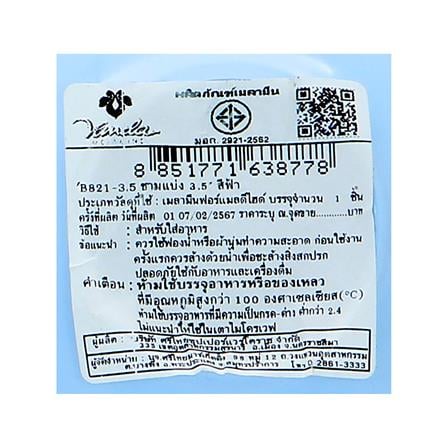 ผลิตภัณฑ์เมลามีน
Vanda
มอก. 2921-2562
8 851771 638778
B821-3.5 ชามแบ่ง 3.5" สีฟ้า
ประเภทวัสดุที่ใช้ : เมลามีนฟอร์แมลดีไฮด์ บรรจุจำนวน 1 ชิ้น
ครั้งที่ผลิต วันที่ผลิต 01 07/02/2567 ราคาระบุ ณ.จุดขาย.........บาท
วิธีใช้ : สำหรับใส่อาหาร
ข้อแนะนำ : ควรใช้ฟองน้ำหรือผ้านุ่มทำความสะอาด ก่อนใช้งาน
ครั้งแรกควรล้างด้วยน้ำเพื่อชะล้างสิ่งสกปรก
ปลอดภัยใช้กับอาหารและเครื่องดื่ม
คำเตือน : ห้ามใช้บรรจุอาหารหรือของเหลว
ที่มีอุณหภูมิสูงกว่า 100 องศาเซลเซียส(°C)
ห้ามใช้บรรจุอาหารที่มีความเป็นกรด-ด่าง ต่ำกว่า 2.4
ไม่แนะนำให้ใช้ในเตาไมโครเวฟ
ผู้ผลิต : บริษัท ศรีไทยซุปเปอร์แวร์โคราช จำกัด
333 เขตอุตสาหกรรมสุรนารี อ.เมือง จ.นครราชสีมา
ผู้จัดจำหน่าย : 99 หมู่ 12 อุตสาหกรรม
จ.สมุทรปราการ โทร 0 2861-3333